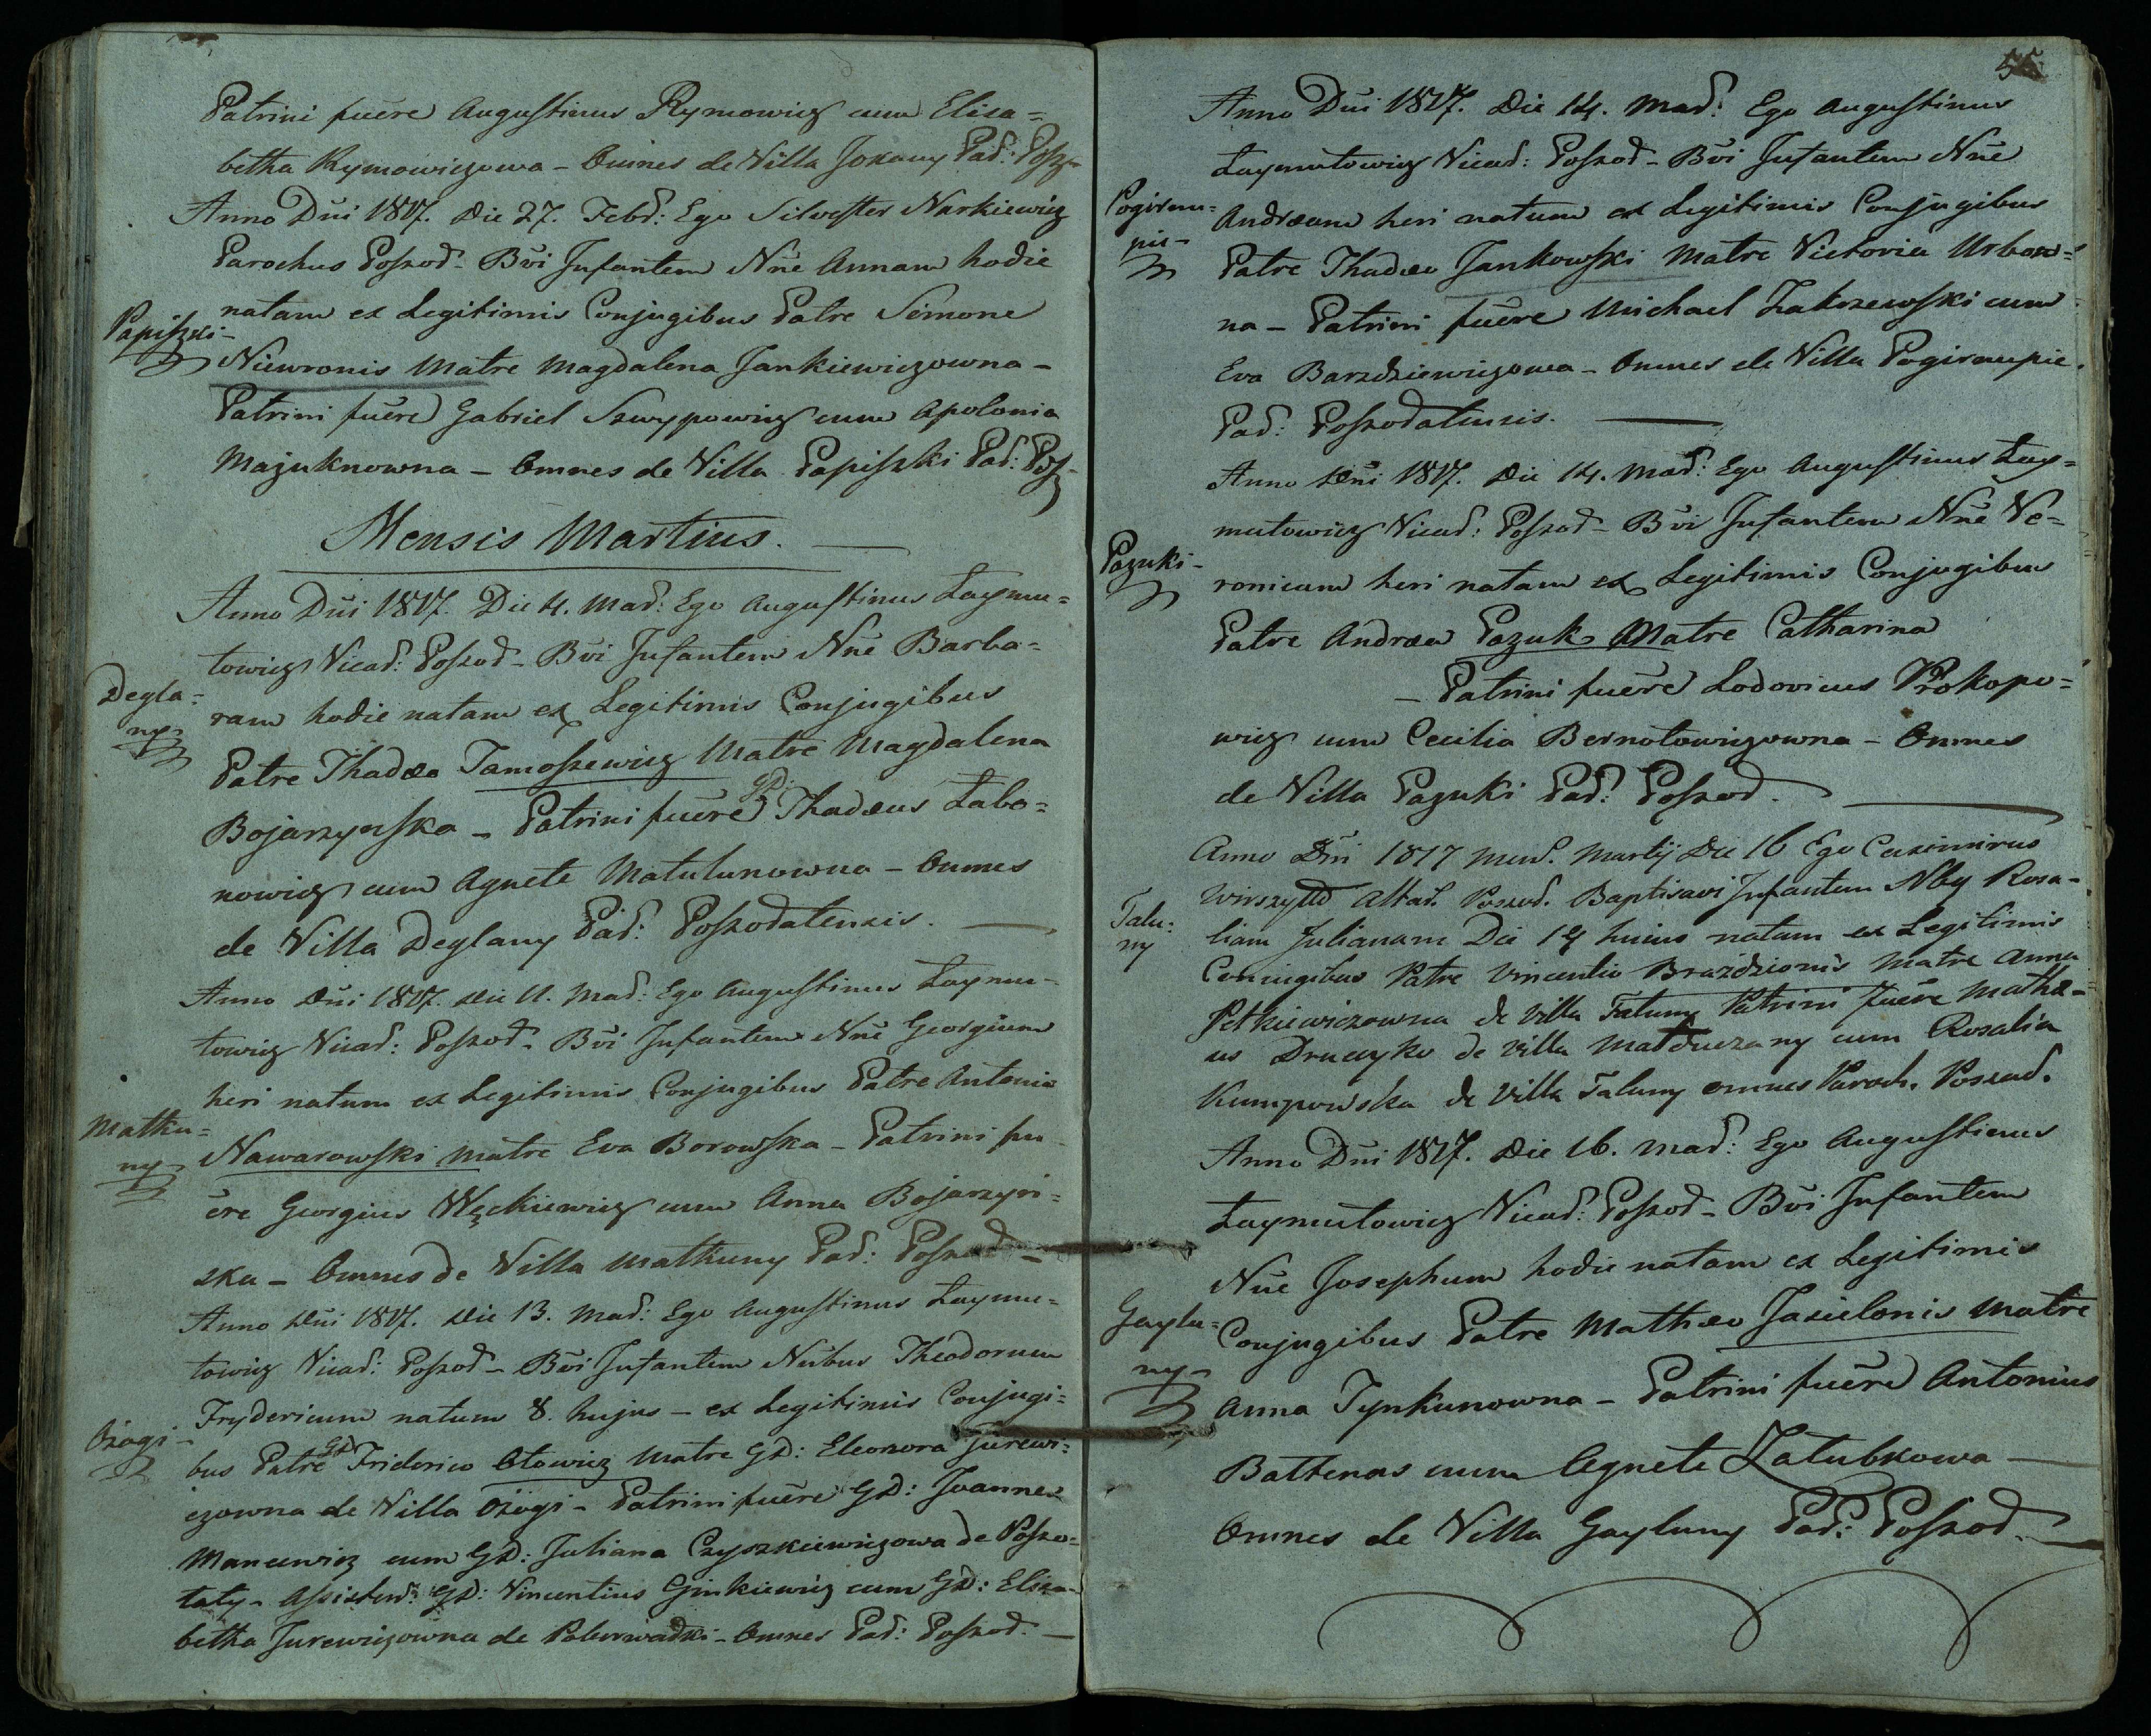 Patrini fuere Augustinus Rymowicz cum Elisa=
betha Rymowiczowa – Omnes de Villa Joxany Par: Posz–
Anno Dni 1817. Die 27. Febr: Ego Silvester Narkiewicz
Parochus Poszod– Bvi Infantem Nne Annam hodie
natam ex Legitimis Conjugibus Patre Simone
Papiszki–
Niewronis Matre Magdalena Jankiewiczowna –
Patrini fuere Gabriel Szwypowicz cum Apolonia
Mazuknowna – Omnes de Villa Papiszki Par: Posz–
Mensis Martius. —
Anno Dni 1817. Die 4. Mar: Ego Augustinus Laymu=
towicz Vicar: Poszod– Bvi Infantem Nne Barba=
Degla=
ny–
ram hodie natam ex Legitimis Conjugibus
Patre Thadæo Tamoszewicz Matre Magdalena
Bojarzynska – Patrini fuere GD Thadæus Labo=
nowicz cum Agnete Matulunowna – Omnes
de Villa Deglany Par: Poszodatensis. —
Anno Dni 1817. Die 11. Mar: Ego Augustinus Laymu–
towicz Vicar: Poszod– Bvi Infantem Nne Georgium
heri natum ex Legitimis Conjugibus Patre Antonio
Matku=
ny–
Nawarowski Matre Eva Borowska – Patrini fu–
ere Georgius Węckiewicz cum Anna Bojarzyn=
ska – Omnes de Villa Matkuny Par: Poszod–
Anno Dni 1817. Die 13. Mar: Ego Augustinus Laymu=
towicz Vicar: Poszod– Bvi Infantem Nnibus Theodorum
Frydericum natum 8. hujus – ex Legitimis Conjugi=
Ożogi–
bus Patre GD Friderico Otowicz Matre GD: Eleonora Jurewi=
czowna de Villa Ożogi – Patrini fuere GD: Joannes
Mancewicz cum GD: Juliana Czyszkiewiczowa de Poszo=
taty – Assisten: GD: Vincentius Ginkiewicz cum GD: Elisa–
betha Jurewiczowna de – Omnes Par: Poszod. —
55
Anno Dni 1817. Die 14. Mar: Ego Augustinus
Laymutowicz Vicar: Poszod– Bvi Infantem Nne
Pogirau=
pie–
Andræam heri natum ex Legitimis Conjugibus
Patre Thadæo Jankowski Matre Victoria Urbon=
na – Patrini fuere Michael Zakrzewski cum
Eva Barzdziewiczowa – Omnes de Villa Pogiraupie.
Par: Poszodatensis. —
Anno Dni 1817. Die 14. Mar: Ego Augustinus Lay=
mutowicz Vicar: Poszod– Bvi Infantem Nne Ve=
Pazuki–
ronicam heri natam ex Legitimis Conjugibus
Patre Andræa Pazuk Matre Catharina
– Patrini fuere Lodovicus Prokopo=
wicz cum Cecilia Bernotowiczowna – Omnes
de Villa Pazuki Par: Poszod. —
Anno Dni 1817 mens. Martij Die 16 Ego Casimirus
Wirszyłło Altar. Poszod. Baptisavi Infantem Nby Rosa–
Talu=
ny
liam Julianam Die 14 huius natam ex Legitimis
Coniugibus Patre Vincentio Brażdzionis Matre Anna
Petkiewiczowna de Villa Taluny Patrini fuere Mathæ–
us Druczyko de Villa cum Rosalia
Kumpowska de Villa Taluny omnes Paroch. Poszod.
Anno Dni 1817. Die 16. Mar: Ego Augustinus
Laymutowicz Vicar: Poszod– Bvi Infantem
Nne Josephum hodie natam ex Legitimis
Gaylu=
ny–
Conjugibus Patre Mathæo Jasiulonis Matre
Anna Tynkunowna – Patrini fuere Antonius
Battenas cum Agnete Zatubkowa –
Omnes de Villa Gayluny Par: Poszod. —